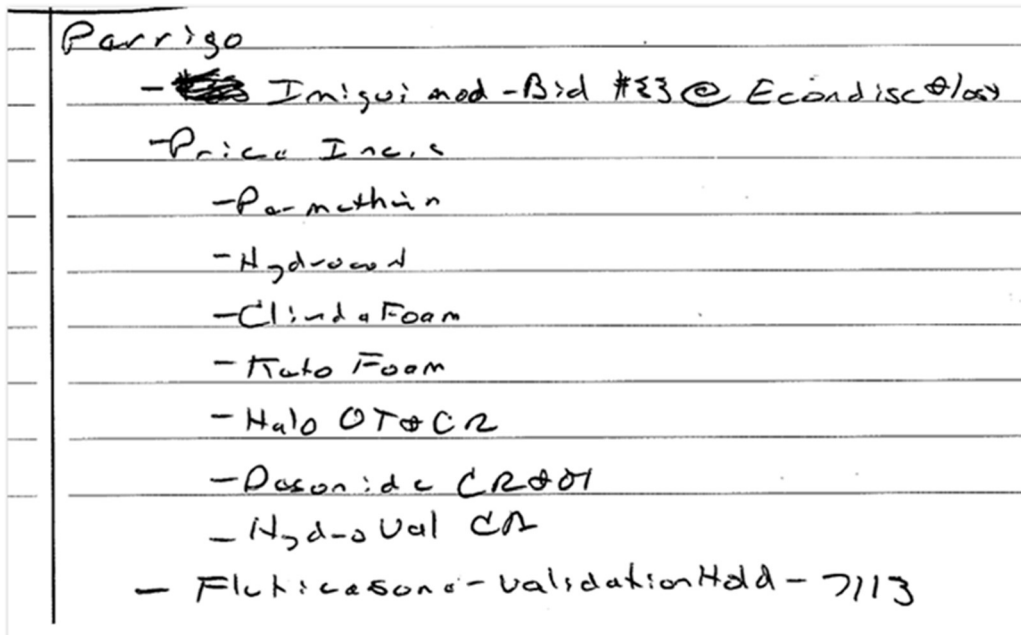 Parrigo
- Imiquimod - Bid #{}3 @ Econdisc & lost
- Price Incs
- Permethrin
- Hydrocort
- Clinda Foam
- Keto Foam
- Halo OT & CR
- Desonide CR & OT
- Hydro Val CR
- Fluticasone - Validation Hold - 7/13